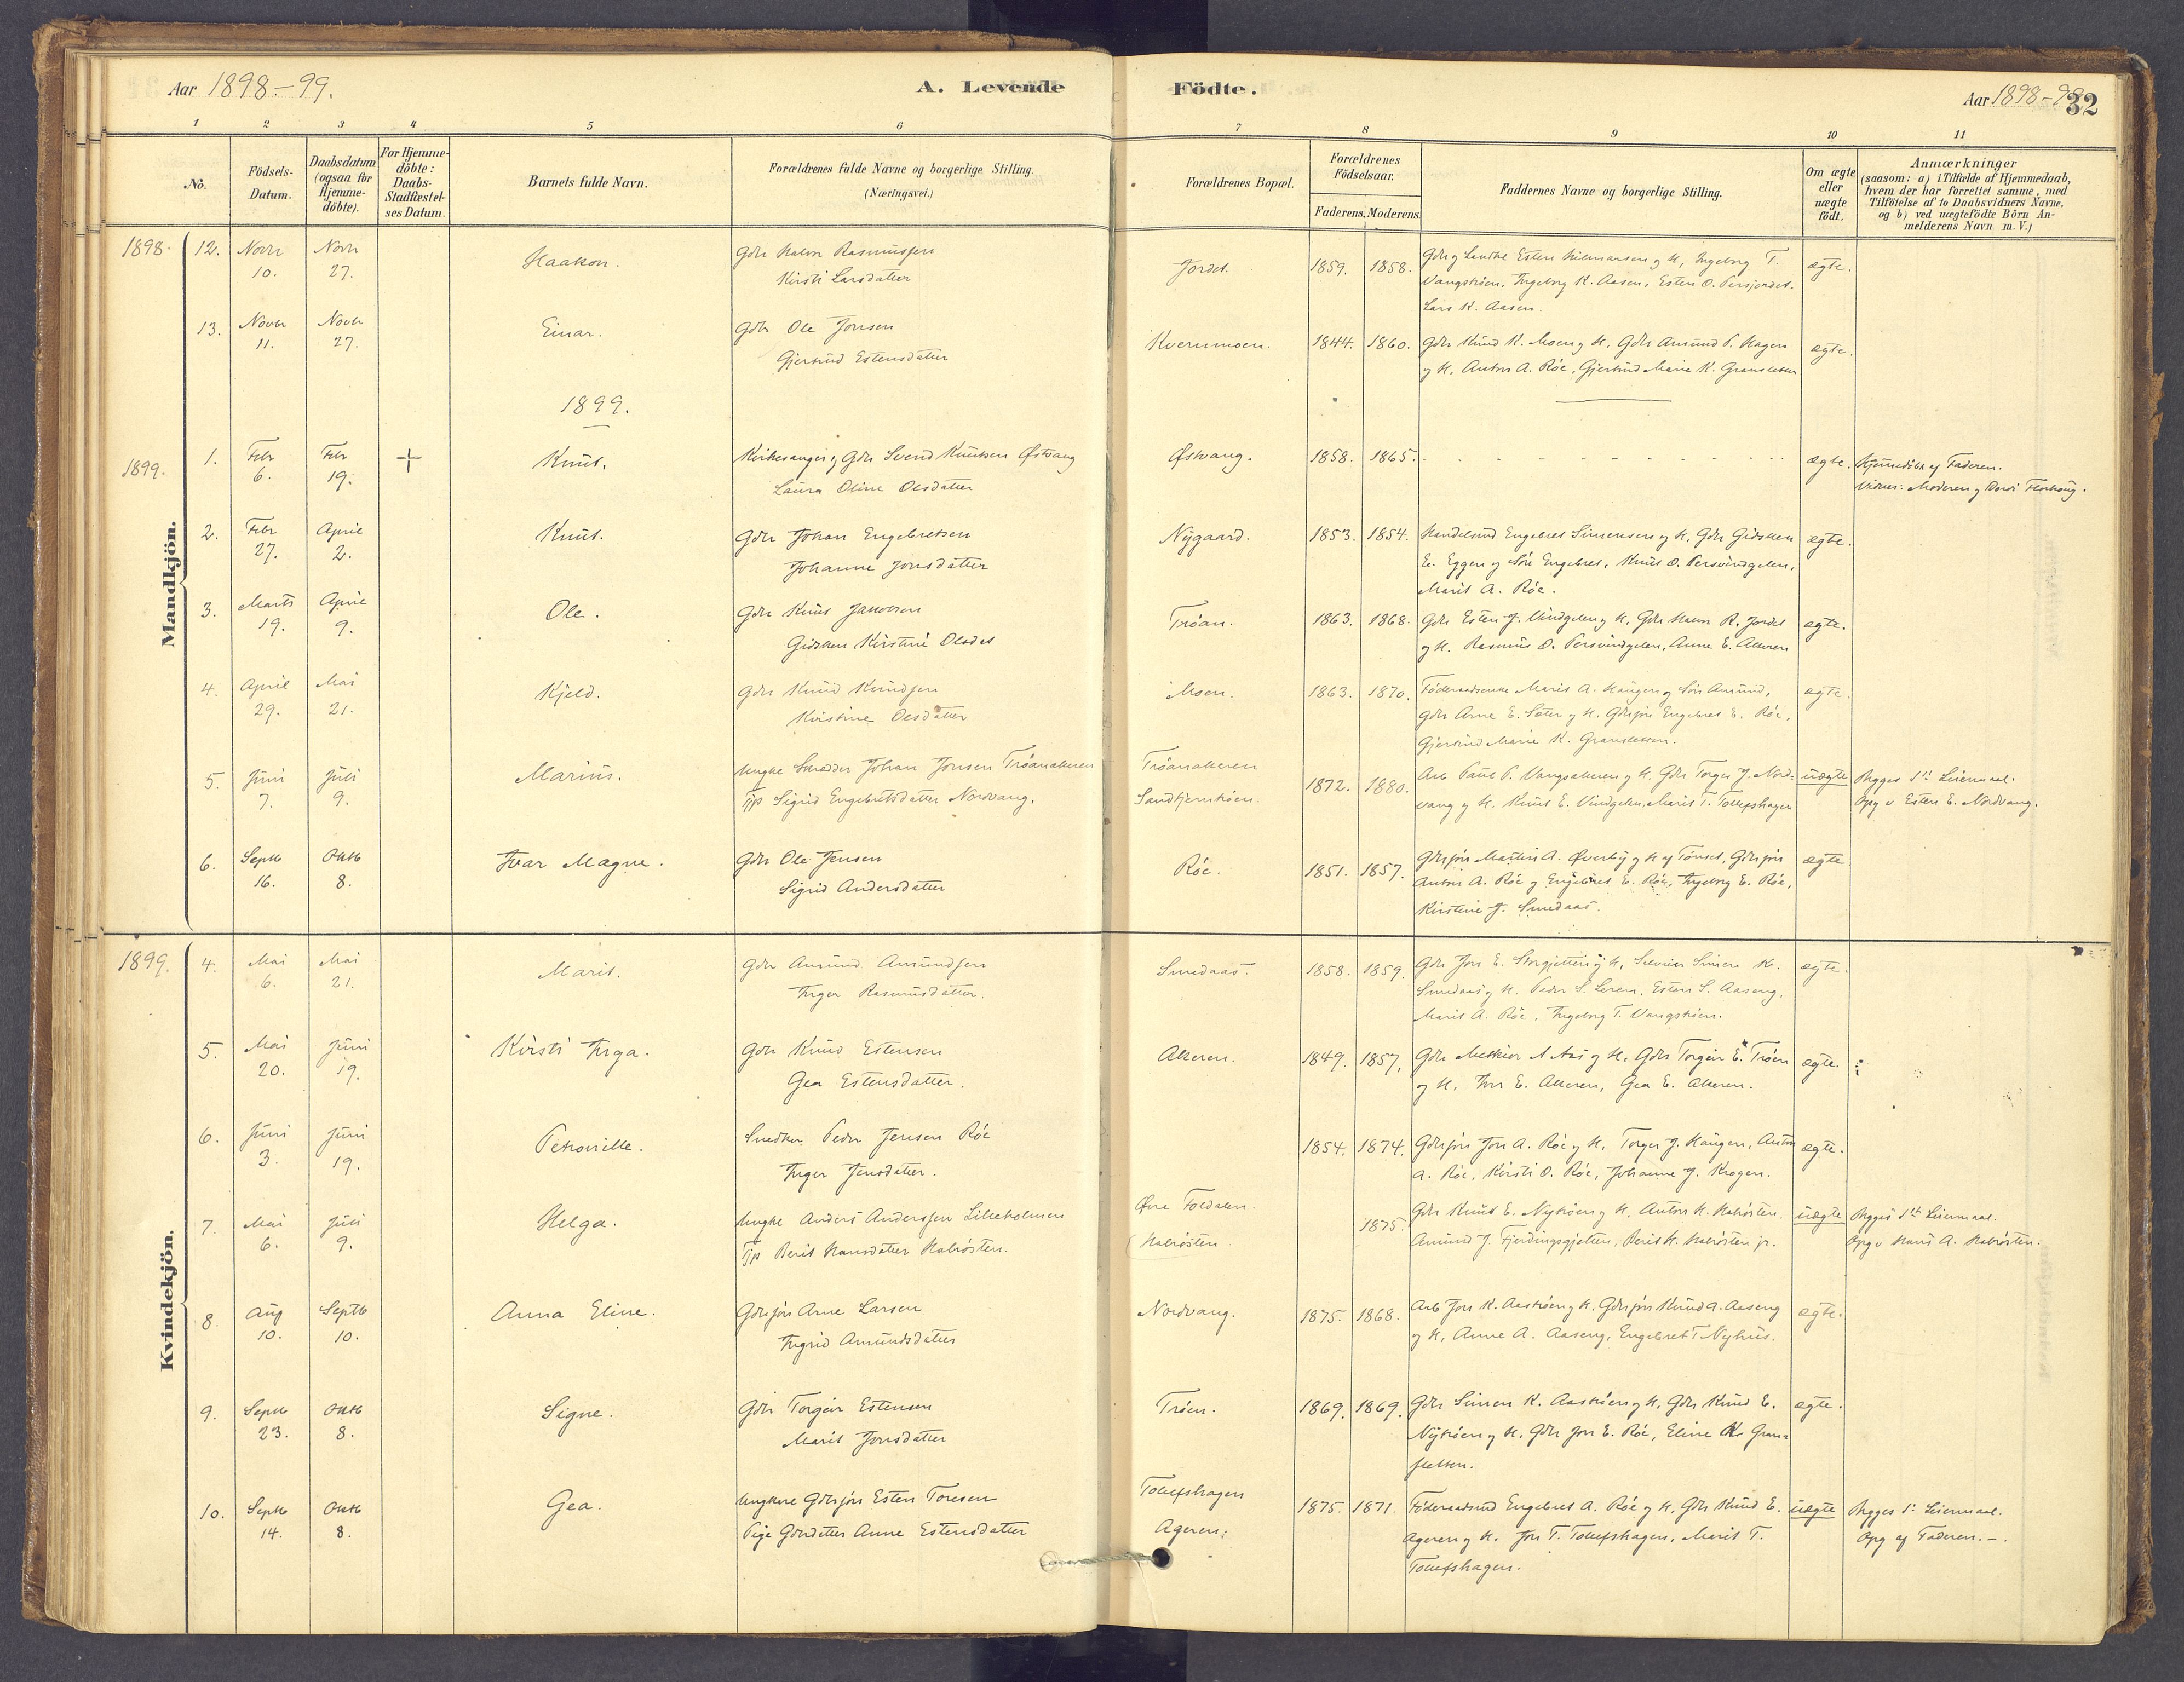 Aar 1898-99.
A. Levende
Födte.
Aar 1898-99.
32
1
2
3
4
5
6
7
8
9
10
11
No.
Födsels-
Datum.
Daabsdatum
(ogsaa for
Hjemme-
döbte).
For Hjemme-
döbte:
Daabs-
Stadfæstel-
ses Datum.
Barnets fulde Navn.
Forældrenes fulde Navne og borgerlige Stilling.
(Næringsvei.)
Forældrenes Bopæl.
Forældrenes
Födselsaar.
Faderens. Moderens.
Faddernes Navne og borgerlige Stilling.
Om ægte
eller
uægte
födt.
Anmærkninger
(saasom: a) i Tilfælde af Hjemmedaab,
hvem der har forrettet samme, med
Tilföielse af to Daabsvidners Navne.
og b) ved uægtefödte Börn An-
melderens Navn m. V.)
Mandkjön.
1898. 12. Novbr 10. Novbr 27. Haakon.
Gbr Halvor Rasmussen
Kirsti Larsdatter
Jordet. 1859. 1858.
Ingeborg T.
Vangstrøen, Ingeborg K. Aasen, Esten O. Persjordet.
Lars K. Aasen.
ægte.
13. Novbr 11. Novbr 27. Einar.
Gbr Ole Jonsen
Gjertrud Estensdatter
Kvernmoen. 1844. 1860.
Gbr Knud K. Moen og H. Gbr Amund P. Hagen
og H. Anton A. Röe, Gjertrud Marie K. Gransletten
ægte.
1899.
1899. 1. Febr 6. Febr 19. + Knut.
Kirkesanger og Gbr Svend Knutsen Østvang
Laura Oline Olsdatter
Østvang. 1858. 1865.
ægte.
Hjemmedöbt af Faderen.
Vidner: Moderen og
2. Febr 27. April 2. Knut.
Gbr Johan Engebretsen
Johanne Jonsdatter
Nygaard. 1853. 1854.
Handelsmd Engebret Simensen og H. Gbr Gidsken
E. Eggen og Sön Engebret, Knut O. Persvindgelen,
Marit A. Röe.
ægte.
3. Marts 19. April 9. Ole.
Gbr Knut Jakobsen
Gidsken Kirstine Olsdat
Tröan. 1863. 1868.
Gbr Esten J. Vindgelen og H. Gbr Halvor R. Jordet
og H. Rasmus O. Persvindgelen, Anne E. Akeren
ægte.
4. April 29. Mai 21. Kjeld.
Gbr Knud Knudsen
Kristine Olsdatter
Moen. 1863. 1870.
Föderaadsenke Marit A. Haugen og Sön Amund,
Gbr Arne E. Sæter og H. Gbrsön Engebret E. Röe,
Gjertrud Marie K. Gransletten.
ægte.
5. Juni 7. Juli 9. Marius.
Ungke Skrædder Johan Jonsen Tröanakeren
Pige Sigrid Engebretsdatter Nordvang.
Tröanakeren
Sandtjernkoen.
1872. 1880.
Arb Paul P. Vangsakeren og H. Gbr Torger J. Nord-
vang og H. Knut E. Vindgelen, Marit T. Tollefshagen
uægte
Begges 1ste Leiermaal.
Opg v Esten E. Nordvang.
6. Septb 16. Oktb 8. Ivar Magne.
Gbr Ole Jensen
Sigrid Andersdatter
Röe. 1851. 1857.
Gbrsön Martin A. Øverby og H af Tönset, Gbrsön
Anton A. Röe og Engebret E. Röe, Ingeborg E. Röe,
Kirstine J. Smedaas.
ægte
Kvindekjön.
1899. 4. Mai 6. Mai 21. Marit.
Gbr Amund Amundsen
Inger Rasmusdatter.
Smedaas. 1858. 1859.
Gbr Jon E. Storgjetten og H, Simen K.
Smedaas og H. Peder S. Leren, Esten S. Aaseng,
Marit A. Röe, Ingeborg T. Vangströen.
ægte.
5. Mai 20. Juni 19. Kirsti Inga.
Gbr Knud Estensen
Gea Estensdatter.
Akeren. 1849. 1857.
Gbr Melkior A Aas og H. Gbr Torgeir E. Tröen
og H. Ivar E. Akeren, Gea E. Akeren.
ægte.
6. Juni 3. Juni 19. Petronille.
Snedker Peder Jensen Röe
Inger Jensdatter.
1854. 1874.
Gbrsön Jon A. Röe og H, Torger J. Haugen, Anton
A. Röe, Kirsti O. Röe, Johanne J. Krogen.
ægte.
7. Mai 6. Juli 9. Helga.
Ungke Anders Anderssen Lilleholmen
Pige Berit Hansdatter Kalrösten.
Øvre Foldalen.
Kalrösten
1875.
Gbr Knut E. Nyströen og H, Anton H. Kalrösten.
Amund J. Fjerdingsgjetten, Berit H. Kalrösten jr.
uægte
Begges 1ste Leiermaal.
Opg v Hans A. Kalrösten.
8. Aug 10. Septb 10. Anna Eline.
Gbrsön Arne Larsen
Ingrid Amundsdatter
Nordvang. 1875. 1868.
Arb Jon K. Aaströen og H. Gbrsön Knud A. Aaseng
og H, Anne A. Aaseng, Engebret T Nyhus.
ægte.
9. Septb 23. Oktb 8. Signe.
Gbr Torgeir Estensen
Marit Jonsdatter
Tröen. 1869. 1869.
Gbr Simen K. Aaströen og H, Gbr Knud E.
Nyströen og H. Gbr Jon E. Röe, Eline K. Gran-
sletten.
ægte.
10. Septb 14. Oktb 8. Gea.
Ungkar Gbrsön Esten Toresen
Pige Gbrdatter Anne Estensdatter
Tollefshagen
Ageren.
1875. 1871.
Föderaadsmd Engebret A. Röe og H. Gbr Knud E.
Ageren og H. Jon T. Tollefshagen, Marit T.
Tollefshagen.
uægte
Begges 1ste Leiermaal.
Opg af Faderen.-.